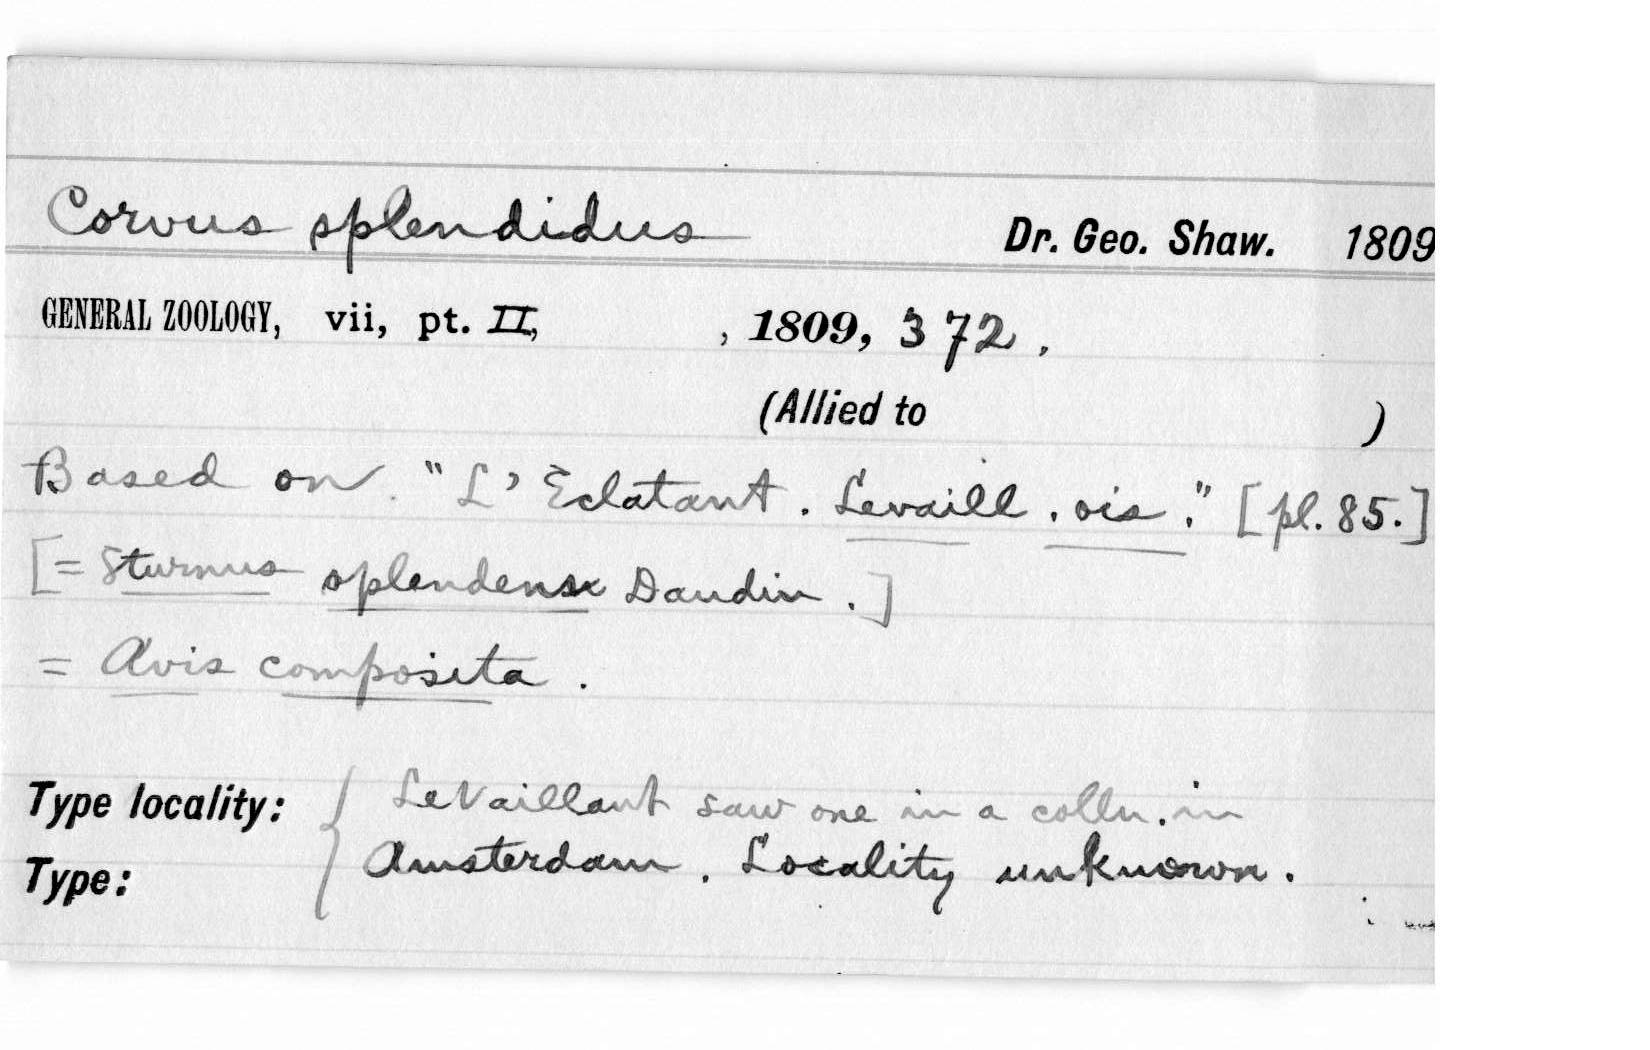 Corvus splendidus Dr. Geo. Shaw. 1809
GENERAL ZOOLOGY, vii, pt. II, , 1809, 372.
(Allied to )
Based on "L'Eclatant. Levaill. ois." [pl. 85.]
[= Sturnus splendens Daudin.]
= Avis composita.
Type locality: { LeVaillant saw one in a colln. in
Type: Amsterdam. Locality unknown.